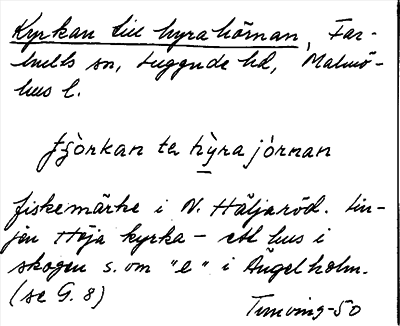 Kyrkan till hyrahörnan, Far-
hults sn, Luggude hd, Malmö-
hus l.
fjòrkan te hỳra jòrnan
fiskemärke i N. Häljaröd. Lin-
jen Höja kyrka – ett hus i
skogen s. om "e" i Ängelholm.
(se G. 8)
Tuneving-50